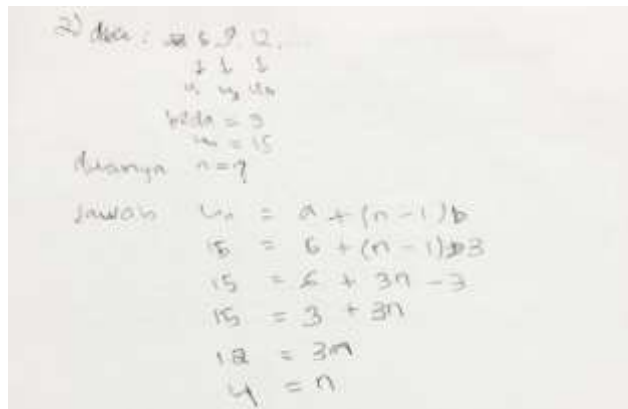 2) dik : 6 9 12.
↓ ↓ ↓
beda = 3
un = 15
ditanya n = ?
Jawab Un = a + (n - 1) b
15 = 6 + (n - 1) 3
15 = 6 + 3n - 3
15 = 3 + 3n
12 = 3n
4 = n